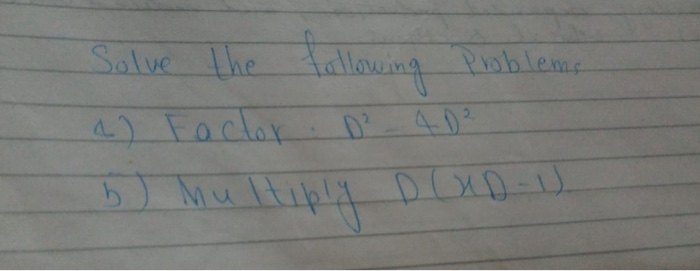 Solve the following Problems
a) Factor. D² - 4D²
b) Multiply D(xD-1)